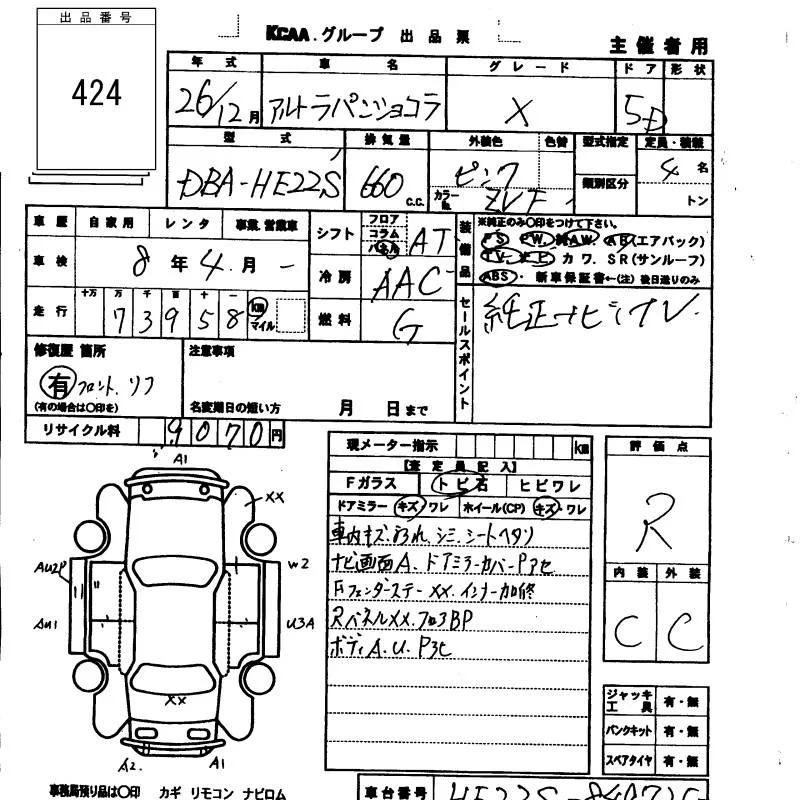 出品番号
424
KCAA.グループ 出品票
主催者用
年式 車名 グレード ドア 形状
26/12月 アルトラパンショコラ X 5D
型式 排気量 外装色 色替 型式指定 定員・積載
DBA-HE22S 660 c.c. ピンク カラーNo. ZVF 類別区分 4名
トン
車歴 自家用 レンタ 事業.営業車
シフト フロア コラム パネル AT
装備品 ※純正のみ〇印をつけて下さい。
PS PW AW AB(エアバック)
TV ナビ カワ SR(サンルーフ)
ABS・ 新車保証書←(注) 後日送りのみ
車検 8年4月
冷房 AAC
走行 十万 万 千 百 十 一
73958 km マイル
燃料 G
セールスポイント
純正ナビ.TV.
修復歴 箇所
有 フロント、リフ
(有の場合は〇印を)
注意事項
名変期日の短い方 月 日まで
リサイクル料 9070円
現メーター指示 km
【査定員記入】
Fガラス トビ石 ヒビワレ
ドアミラー キズ/ワレ ホイール(CP) キズ・ワレ
車内キズ.汚れ.シミ.シートヘタリ
ナビ画面A.ドアミラーカバーPヨセ
FフェンダーステーXX.インナー加修
RパネルXX.フロアBP
ボディA.U.Pヨセ
評価点
R
内装 外装
C C
ジャッキ 工具 有・無
パンクキット 有・無
スペアタイヤ 有・無
A1
XX
AU2P
W2
AU1
U3A
XX
A2.
A1
事務局預り品は〇印 カギ リモコン ナビロム
車台番号 HE22S-